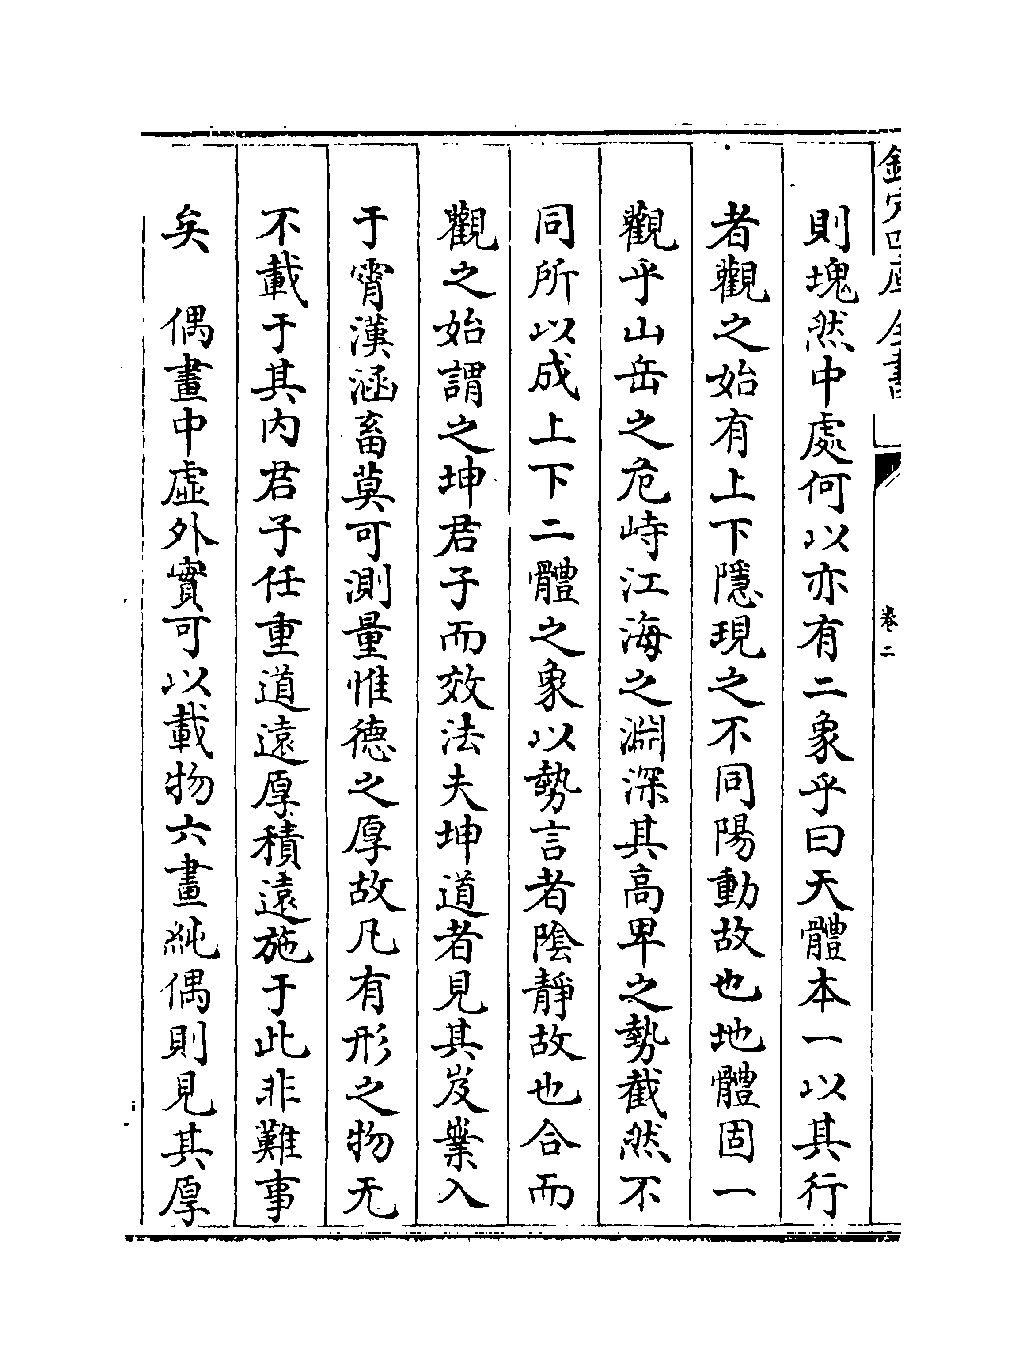 欽定四庫全書
卷二
則塊然中處何以亦有二象乎曰天體本一以其行
者觀之始有上下隱現之不同陽動故也地體固一
觀乎山岳之危峙江海之淵深其高卑之勢截然不
同所以成上下二體之象以勢言者陰靜故也合而
觀之始謂之坤君子而效法夫坤道者見其岌業入
于霄漢涵畜莫可測量惟德之厚故凡有形之物无
不載于其内君子任重道遠厚積遠施于此非難事
矣　偶畫中虛外實可以載物六畫純偶則見其厚